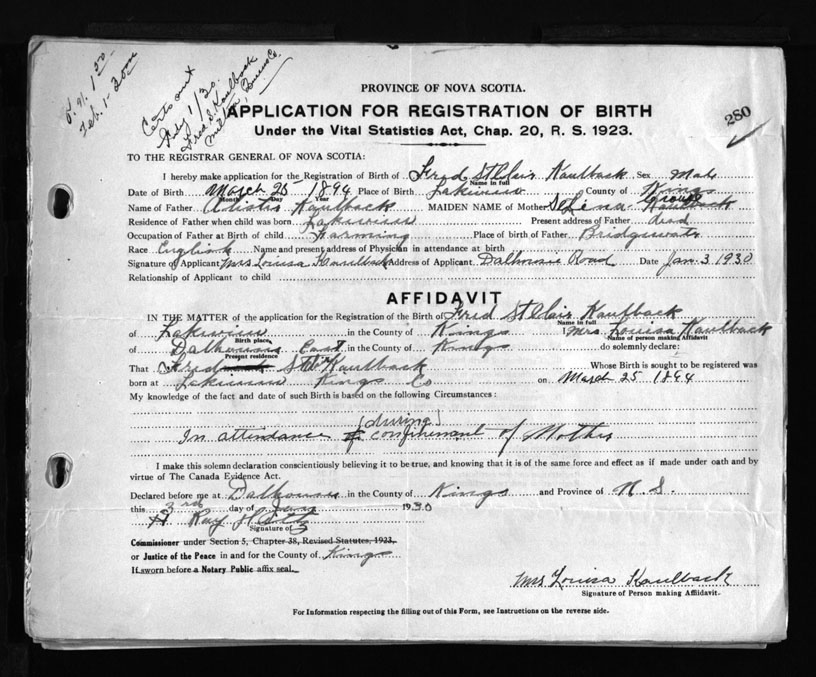 Feb. 1-
Certs out
1/30
Fred S. Kaulback
Milton, Queens Co.
280
PROVINCE OF NOVA SCOTIA.
APPLICATION FOR REGISTRATION OF BIRTH
Under the Vital Statistics Act, Chap. 20, R. S. 1923.
TO THE REGISTRAR GENERAL OF NOVA SCOTIA:
I hereby make application for the Registration of Birth of Fred St Clair Kaulback Sex Male
Name in full
Date of Birth March 25 - 1894 Place of Birth Lakeview County of Kings
Month Day Year
Name of Father Kaulback MAIDEN NAME of Mother Selena Kaulback
Residence of Father when child was born Lakeview Present address of Father dead
Occupation of Father at Birth of child Farming Place of birth of Father Bridgewater
Race English Name and present address of Physician in attendance at birth
Signature of Applicant Mrs Louisa Kaulback Address of Applicant Dalhousie Road Date Jan. 3 1930
Relationship of Applicant to child
AFFIDAVIT
IN THE MATTER of the application for the Registration of the Birth of Fred St Clair Kaulback
Name in full
of Lakeview in the County of Kings I Mrs. Louisa Kaulback
Birth place Name of person making Affidavit
of Dalhousie East in the County of Kings do solemnly declare:
Present residence
That Fred St Clair Kaulback Whose Birth is sought to be registered was
born at Lakeview Kings Co on March 25 1894
My knowledge of the fact and date of such Birth is based on the following Circumstances:
(during)
In attendance confinement of Mother
I make this solemn declaration conscientiously believing it to be true, and knowing that it is of the same force and effect as if made under oath and by
virtue of The Canada Evidence Act.
Declared before me at Dalhousie in the County of Kings and Province of N. S.
this 3rd day of Jany 1930
Ray
Signature of
Commissioner under Section 5, Chapter 38, Revised Statutes, 1923.
or Justice of the Peace in and for the County of Kings
If sworn before a Notary Public affix seal.
Mrs Louisa Kaulback
Signature of Person making Affidavit.
For Information respecting the filling out of this Form, see Instructions on the reverse side.